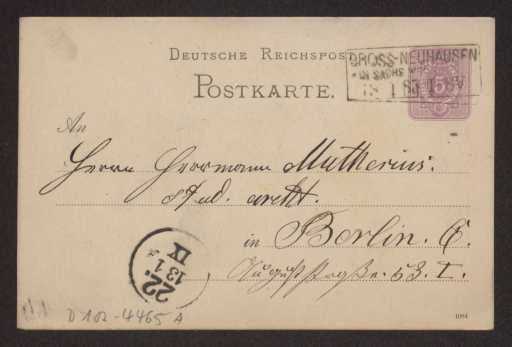 DEUTSCHE REICHSPOST
POSTKARTE.
GROSS-NEUHAUSEN
IN SACHS
5
An
Herrn Herrmann Muthesius.
stud. archt.
in Berlin. C.
Auguststraße. 53. I.
22.
13 1
IX
D 102-4465 A